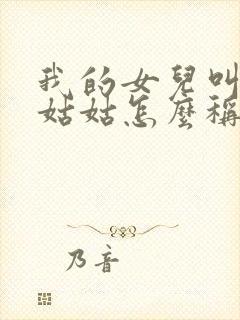 我的女兒叫
姑姑怎麼稱
乃音